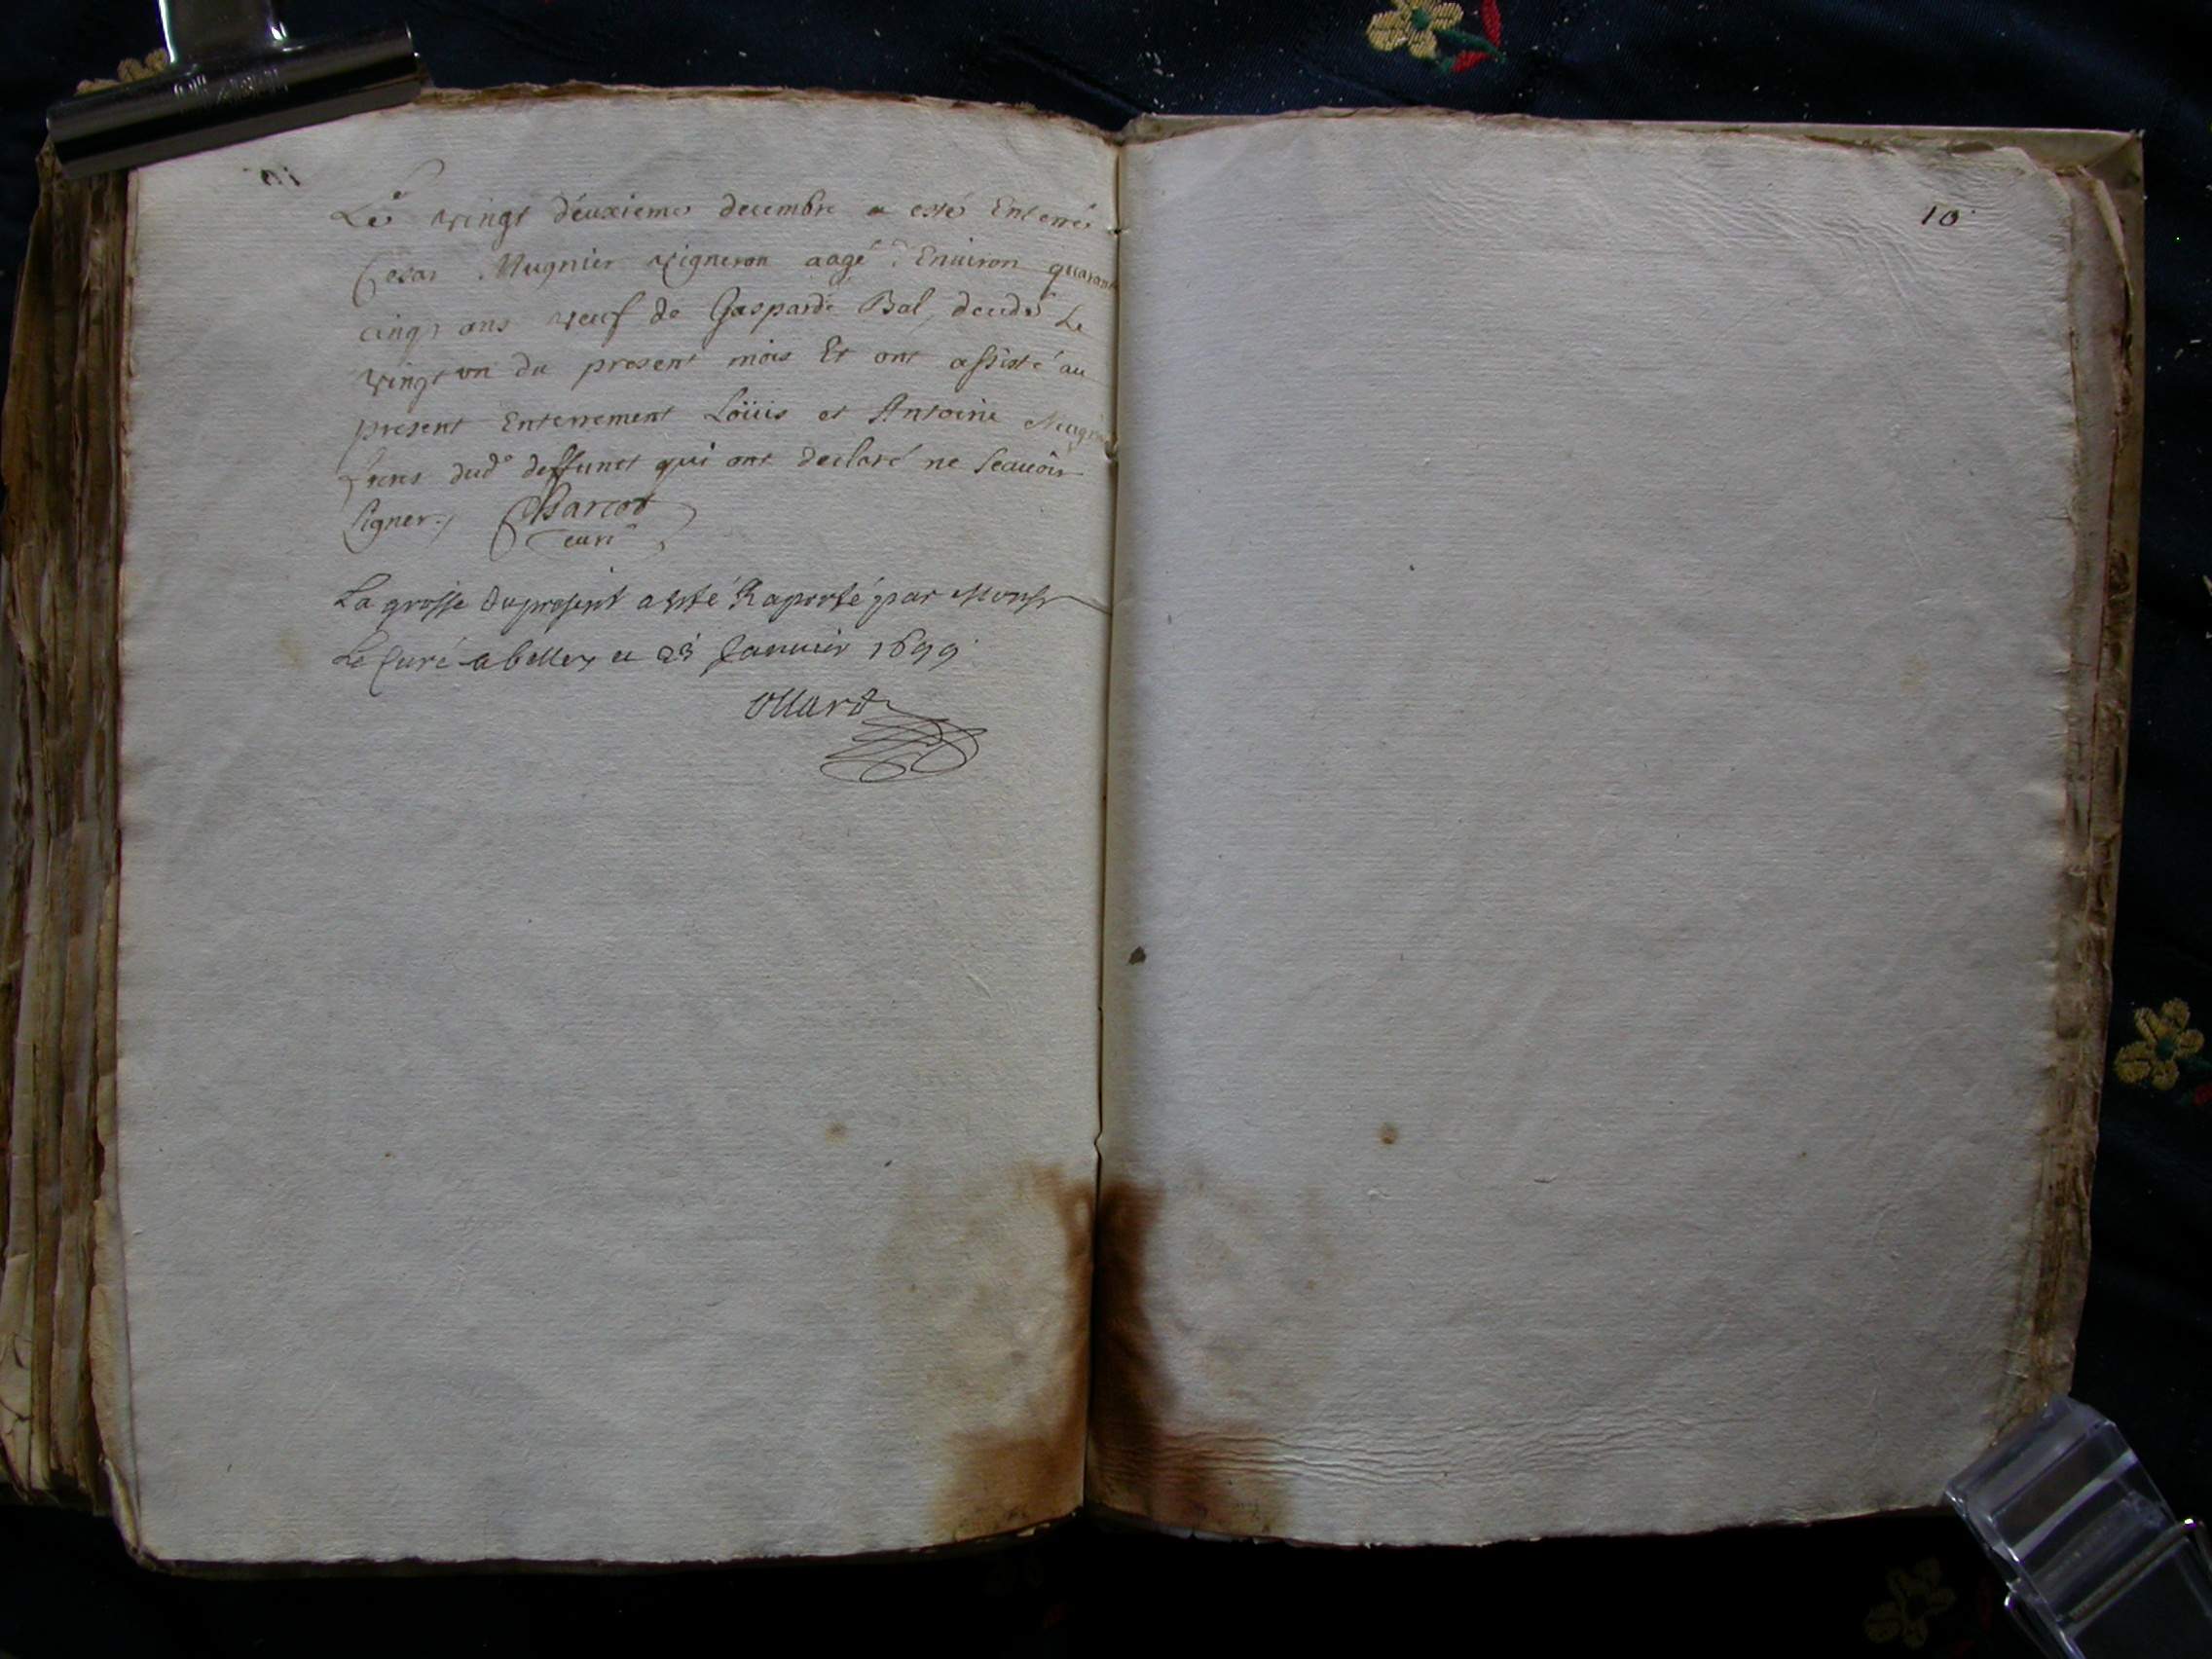 Le vingt deuxieme decembre a esté Enterré
Cesar Mugnier vigneron aagé d'Enuiron quarant
cinq ans veuf de Gasparde Bal, decedé Le
vingt un du present mois Et ont assisté au
present Enterrement Loüis et Antoine Mugnier
freres dud deffunct qui ont declaré ne scauoir
signer.
Charcot
curé
La grosse du present a esté Raporté par Monsr
Le Curé a belley ce 23 Januier 1699
Ollard
10